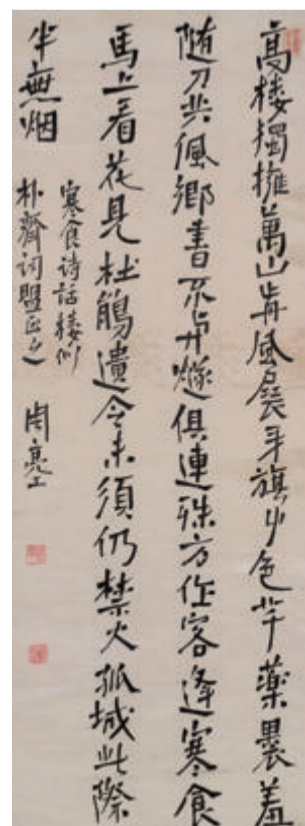 高樓獨擁萬山前風展牙旗艸色芊藥裹羞
隨刀共佩鄉書不與燧俱連殊方作客逢寒食
馬上看花見杜鵑遺令未須仍禁火孤城此際
半無烟
寒食詩話樓似
朴齋詞盟正之 周亮工